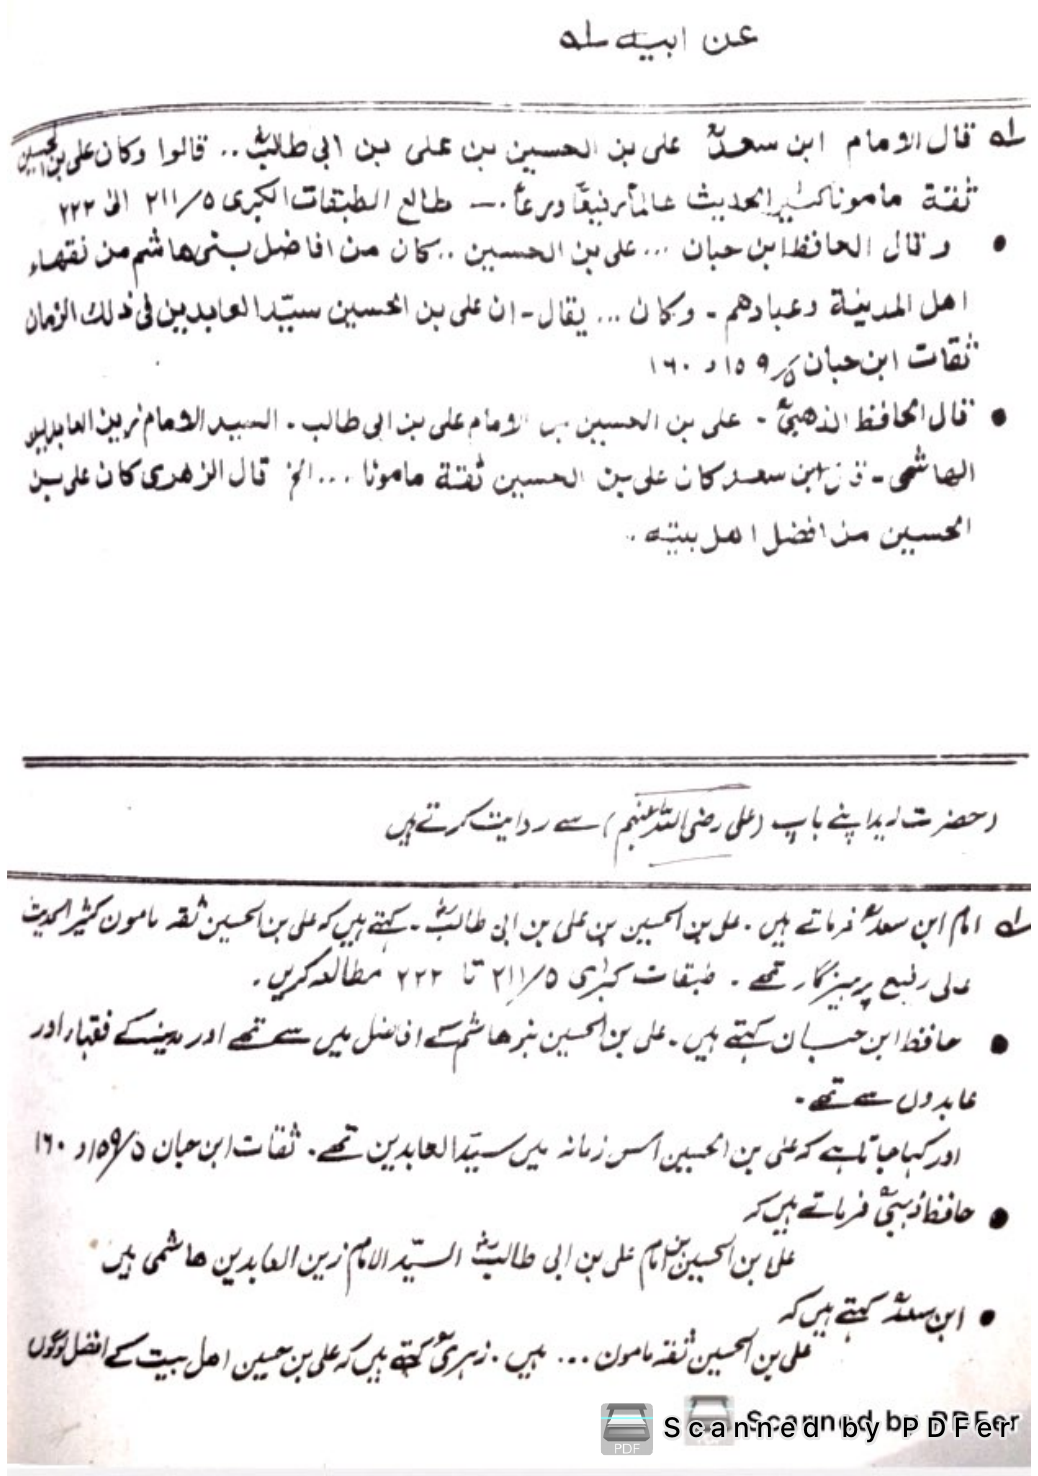 عن ابیه له
له قال الامام ابن سعدؒ علی بن الحسین بن علی بن ابی طالبؓ .. قالوا وکان علی بن الحسین
ثقة مامونا کثیر الحدیث عالماً رفیعاً ورعاً .— مطالع الطبقات الکبری ۵/۲۱۱ الی ۲۲۲
• وقال الحافظ ابن حبان ... علی بن الحسین .. کان من افاضل بنی هاشم من فقهاء
اهل المدینة وعبادهم - وکان ... یقال - ان علی بن الحسین سیّد العابدین فی ذلك الزمان
ثقات ابن حبان ۵/۱۵۹ و ۱۶۰
• قال الحافظ الذهبیؒ - علی بن الحسین بن الامام علی بن ابی طالب - السید الامام زین العابدین
الهاشمی - قال ابن سعد کان علی بن الحسین ثقة مامونا ... الخ قال الزهری کان علی بن
الحسین من افضل اهل بیته .
(حضرت زید اپنے باپ (علی رضی اللہ عنہم) سے روایت کرتے ہیں
له امام ابن سعدؒ فرماتے ہیں . علی بن الحسین بن علی بن ابی طالبؓ - کہتے ہیں کہ علی بن الحسین ثقہ مامون کثیر الحدیث
عالی رفیع پرہیزگار تھے . طبقات کبرٰی ۵/۲۱۱ تا ۲۲۲ مطالعہ کریں .
• حافظ ابن حبان کہتے ہیں . علی بن الحسین بنو ھاشم کے افاضل میں سے تھے اور مدینہ کے فقہاء اور
عابدوں سے تھے -
اور کہا جاتا ہے کہ علی بن الحسین اس زمانہ میں سیّد العابدین تھے . ثقات ابن حبان ۵/۱۵۹ و ۱۶۰
• حافظ ذہبیؒ فرماتے ہیں کہ
علی بن الحسین بن امام علی بن ابی طالبؓ السیّد الامام زین العابدین ھاشمی ہیں
• ابن سعدؒ کہتے ہیں کہ
علی بن الحسین ثقہ مامون ... ہیں . زہریؒ کہتے ہیں کہ علی بن حسین اھل بیت کے افضل لوگوں
Scanned by PDFer
Scanned by PDFer